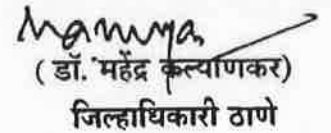 ( डॉ. महेंद्र कल्याणकर)
जिल्हाधिकारी ठाणे